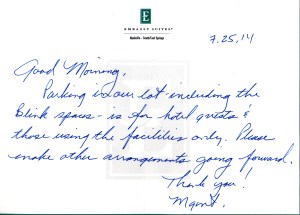 E
EMBASSY SUITES
Nashville - South/Cool Springs
7.25.14
Good Morning,
Parking in our lot including the
Blink spaces - is for hotel guests &
those using the facilities only. Please
make other arrangements going forward.
Thank you!
Mgmt.